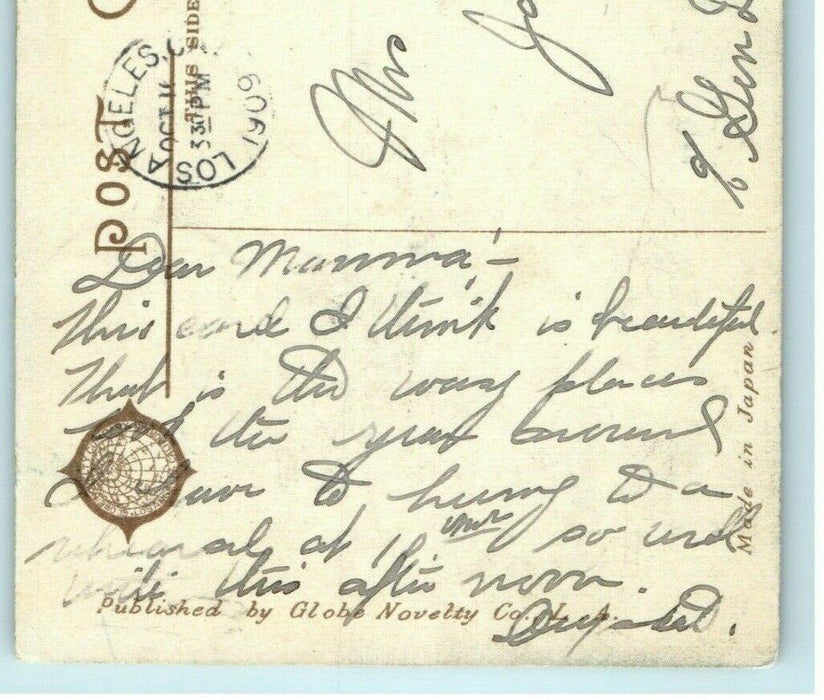 POST
THIS SIDE
LOS ANGELES, C
OCT 11
330 PM
1909
Mr Ja
% Gen
Dear Mamma -
This card I think is beautiful.
That is the way places
the year around
I have to hurry to a
rehearsal at 10 so will
write this after noon.
Made in Japan
Published by Globe Novelty Co., L. A.